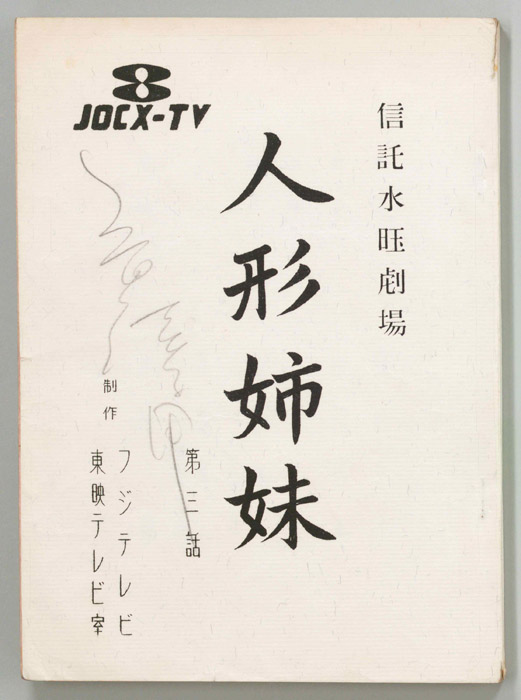 信託水旺劇場
人形姉妹
第三話
JOCX-TV
制作
フジテレビ
東映テレビ室